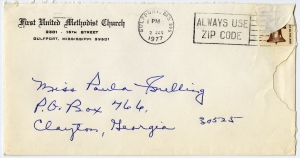 First United Methodist Church
2301 - 15TH STREET
GULFPORT, MISSISSIPPI 39501
GULFPORT, MS
PM
1977
ALWAYS USE
ZIP CODE
Miss Paula
P.O. Box 766,
Clayton, Georgia
30525